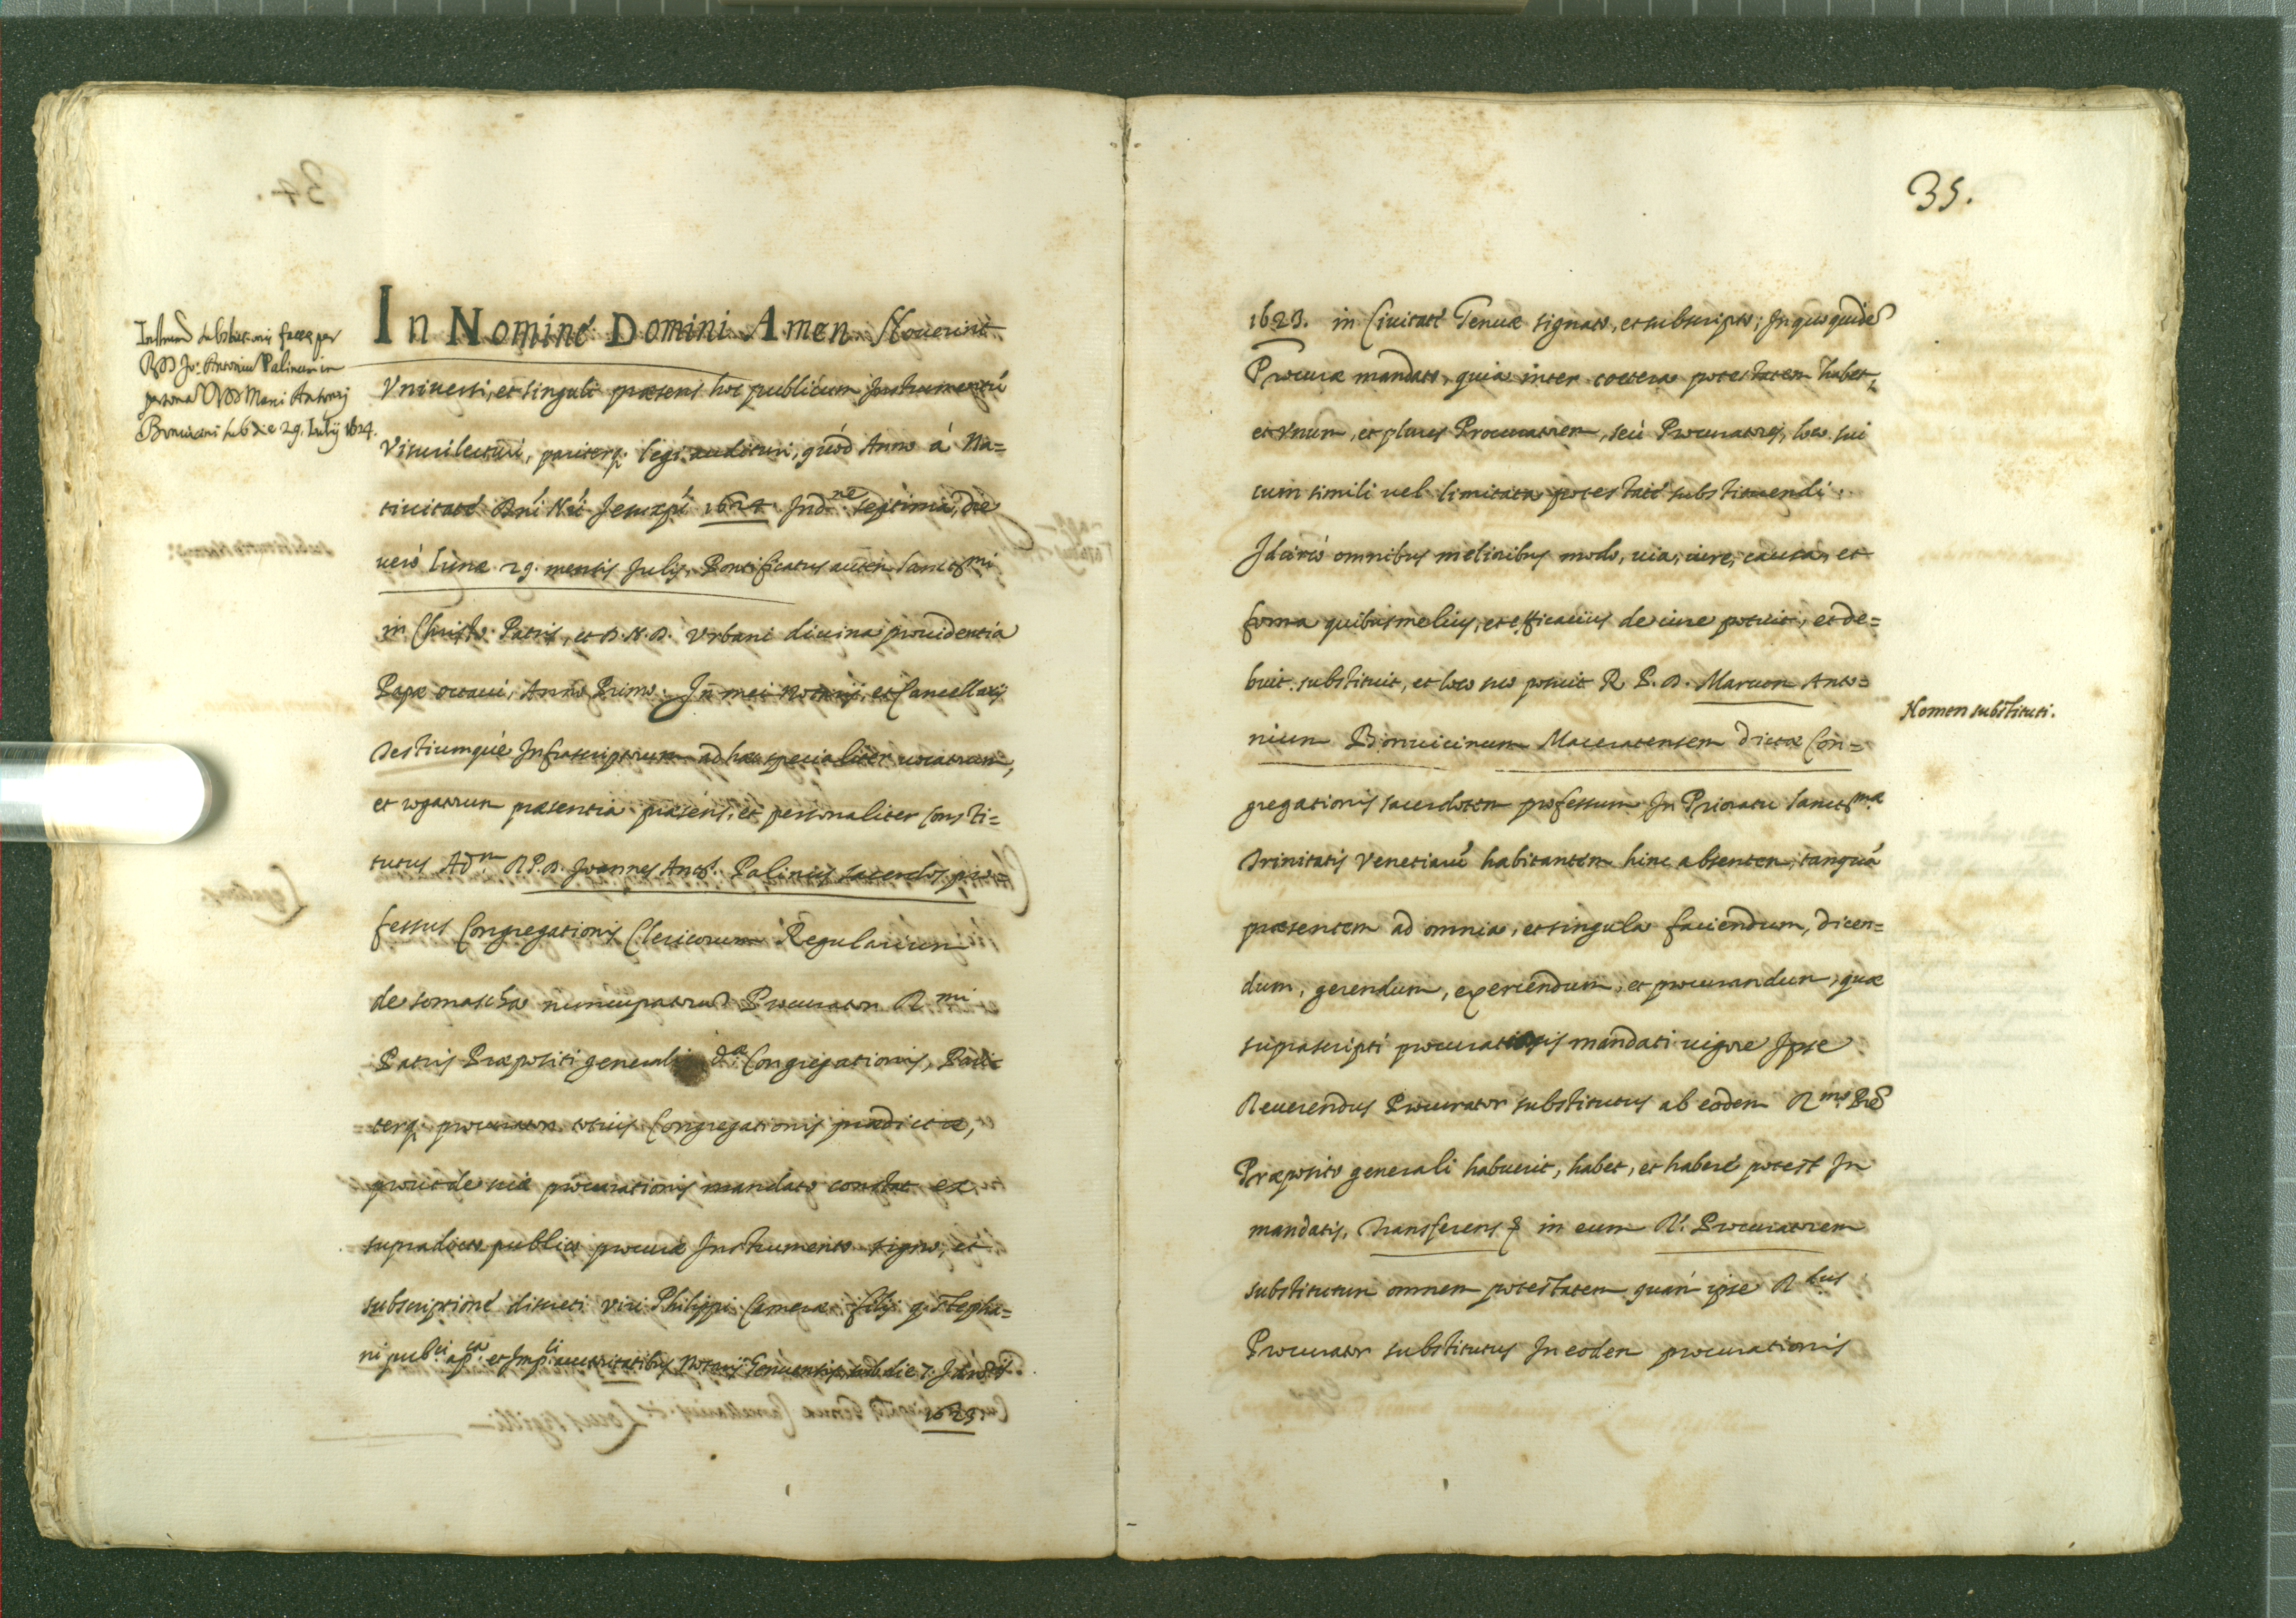 Instrum. substitut.onis factæ per
RDD Jo: Antonium Palinum in
persona DD Marci Antonij
Bonvicini sub die 29. Julij 1624.
In Nominé Domini Amen Nouerint
Vniuersi, et singuli præsens hoc publicum Instrumentū
Visuri lecturi, pariterq. legi audituri, quòd Anno à Na=
tiuitaté Dni Nri Jesu xpi 1624 Indne septima, die
uerò lunæ 29. mensis Julij, Pontificatus autem Sanctmi
in Christo Patris, et D. N. D. Vrbani diuina prouidentia
Papæ octaui, Anno Primo. In mei Notarij, et Cancellarij
Testiumqué Infrascriptorum ad hæc specialiter uocatorum,
et rogatorum præsentia præsens, et personaliter consti=
tutus Adm R. P. D. Joannes Antos Palinus sacerdos pro=
fessus Congregationis Clericorum Regularium
de somascha nuncupatorum Procurator Rmi
Patris Præpositi generalis dæ Congregationis, Pari=
terq. procurator totius Congregationis prædictæ,
prout de suæ procurationis mandato constat ex
supradicto publico procuræ Instrumento signo, et
subscriptioné discreti viri Philippi Cameræ filij q. Stepha=
ni pubci apca et Impli auctoritatibus Notarij Genuensis, sub die 7.
1623.
35.
1623. in Ciuitaté Genuæ signato, et subscripto; In quo quidē
Procuræ mandato, quia inter coetera potestatem habet,
et vnum, et plures Procuratorem, seù Procuratores, loco sui
cum simili uel limitata potestaté substituendi.
Idcircò omnibus melioribus modo, uia, iure, causa, et
forma quibus melius, et efficacius de iure potuit, et de=
buit substituit, et loco suo posuit R. P. D. Marcum Anto=
nium Bonuicinum Maceratensem dictæ Con=
Nomen substituti.
gregationis sacerdotem professum In Prioratu Sanctmæ
Trinitatis Venetiarū habitantem hinc absentem, tanquā
præsentem ad omnia, et singula faciendum, dicen=
dum, gerendum, exercendum, et procurandum, quæ
suprascripti procurationis mandati uigore Ipse
Reuerendus Procurator substitutus ab eodem Rmo Prē
Præposito generali habuerit, habet, et haberé potest In
mandatis, Transferens q in eum R. Procuratorem
substitutum omnem potestatem quam ipse Rdus
Procurator substitutus In eodem procurationis